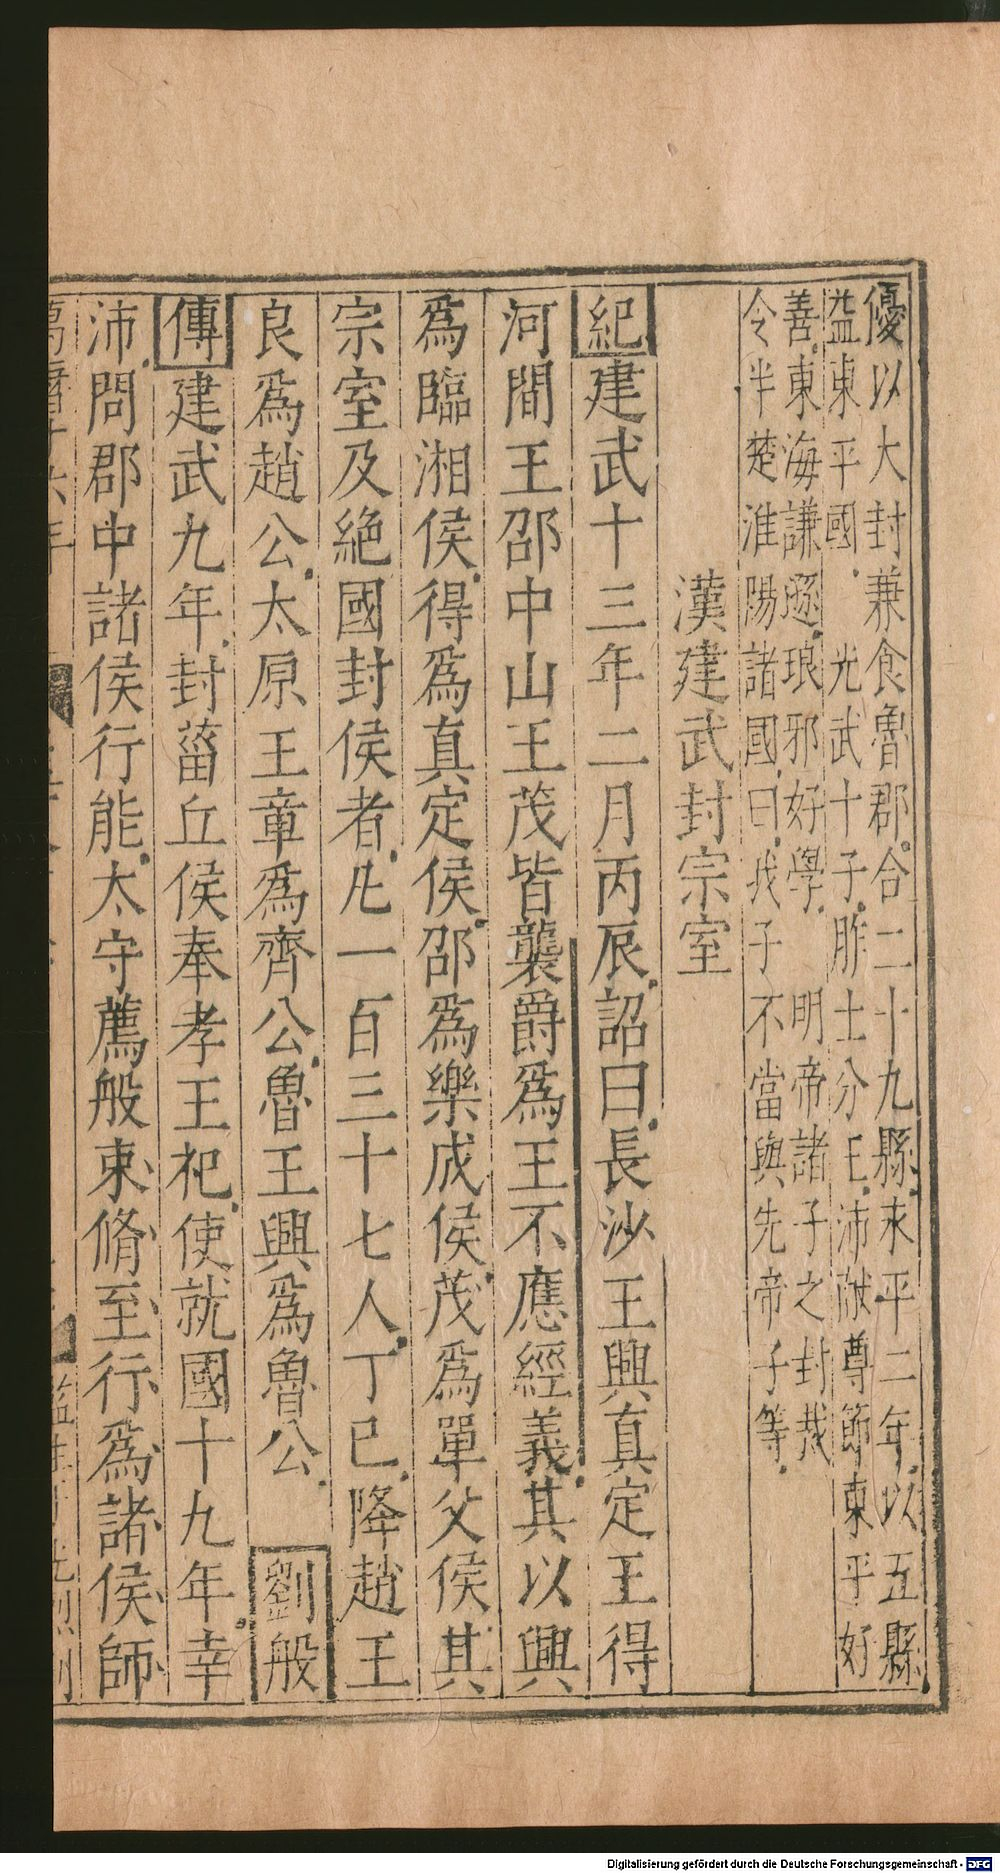 優以大封兼食魯郡合二十九縣永平二年以五縣
益東平國　光武十子胙土分王沛獻尊節東平好
善東海謙遜琅邪好學　明帝諸子之封裁
令半楚淮陽諸國曰我子不當與先帝子等
漢建武封宗室
紀建武十三年二月丙辰詔曰長沙王興真定王得
河間王邵中山王茂皆襲爵爲王不應經義其以興
爲臨湘侯得爲真定侯邵爲樂成侯茂爲單父侯其
宗室及絕國封侯者凡一百三十七人丁巳降趙王
良爲趙公太原王章爲齊公魯王興爲魯公　劉般
傳建武九年封菑丘侯奉孝王祀使就國十九年幸
沛問郡中諸侯行能太守薦般束脩至行爲諸侯師
萬曆十六年
Digitalisierung gefördert durch die Deutsche Forschungsgemeinschaft - DFG